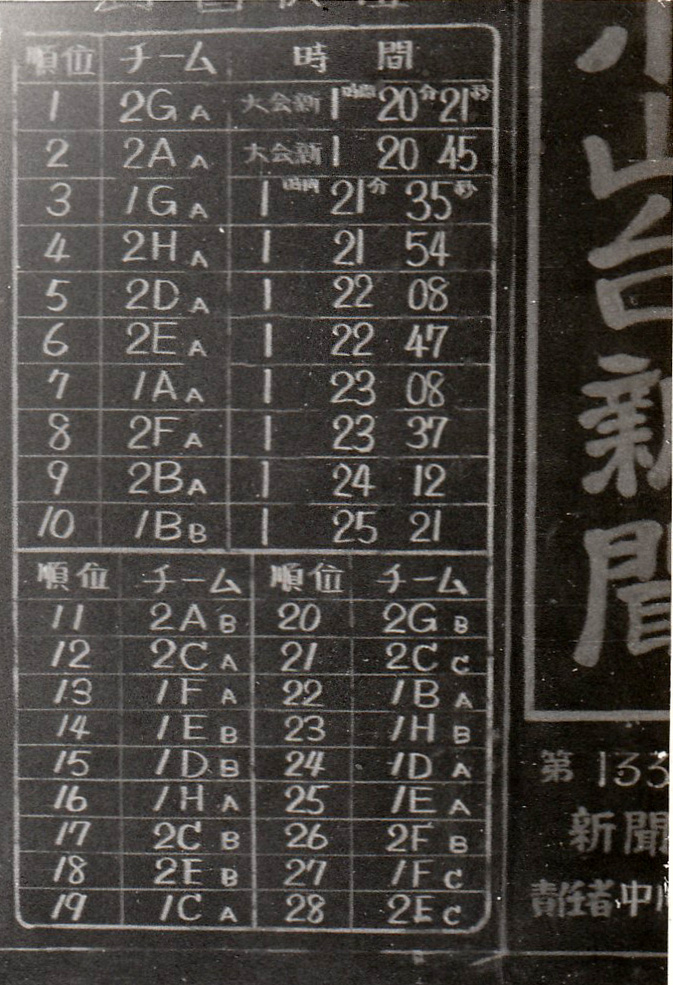 順位 チーム 時間
1 2G A 大会新 1時間20分21秒
2 2A A 大会新 1 20 45
3 1G A 1時間 21分 35秒
4 2H A 1 21 54
5 2D A 1 22 08
6 2E A 1 22 47
7 1A A 1 23 08
8 2F A 1 23 37
9 2B A 1 24 12
10 1B B 1 25 21
順位 チーム 順位 チーム
11 2A B 20 2G B
12 2C A 21 2C C
13 1F A 22 1B A
14 1E B 23 1H B
15 1D B 24 1D A
16 1H A 25 1E A
17 2C B 26 2F B
18 2E B 27 1F C
19 1C A 28 2E C
小山台新聞
第133
新聞
責任者中